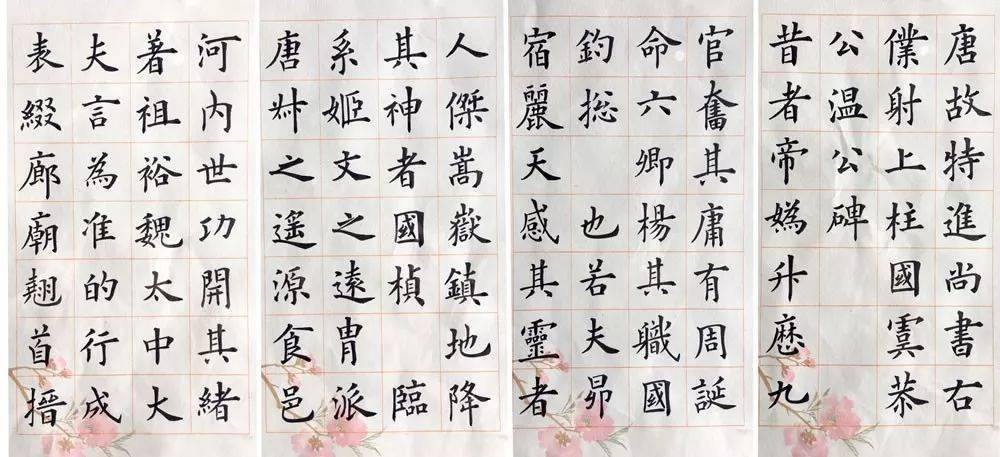 唐故特進尚書右
僕射上柱國虞恭
公温公碑
昔者帝媯升歷九
官奮其庸有周誕
命六卿楊其職國
鈞揔 也若夫昴
宿麗天感其靈者
人傑嵩嶽鎮地降
其神者國楨 臨
系姬文之遠胄派
唐叔之遥源食邑
河内世功開其緒
著祖裕魏太中大
夫言為准的行成
表綴廊廟翹首搢